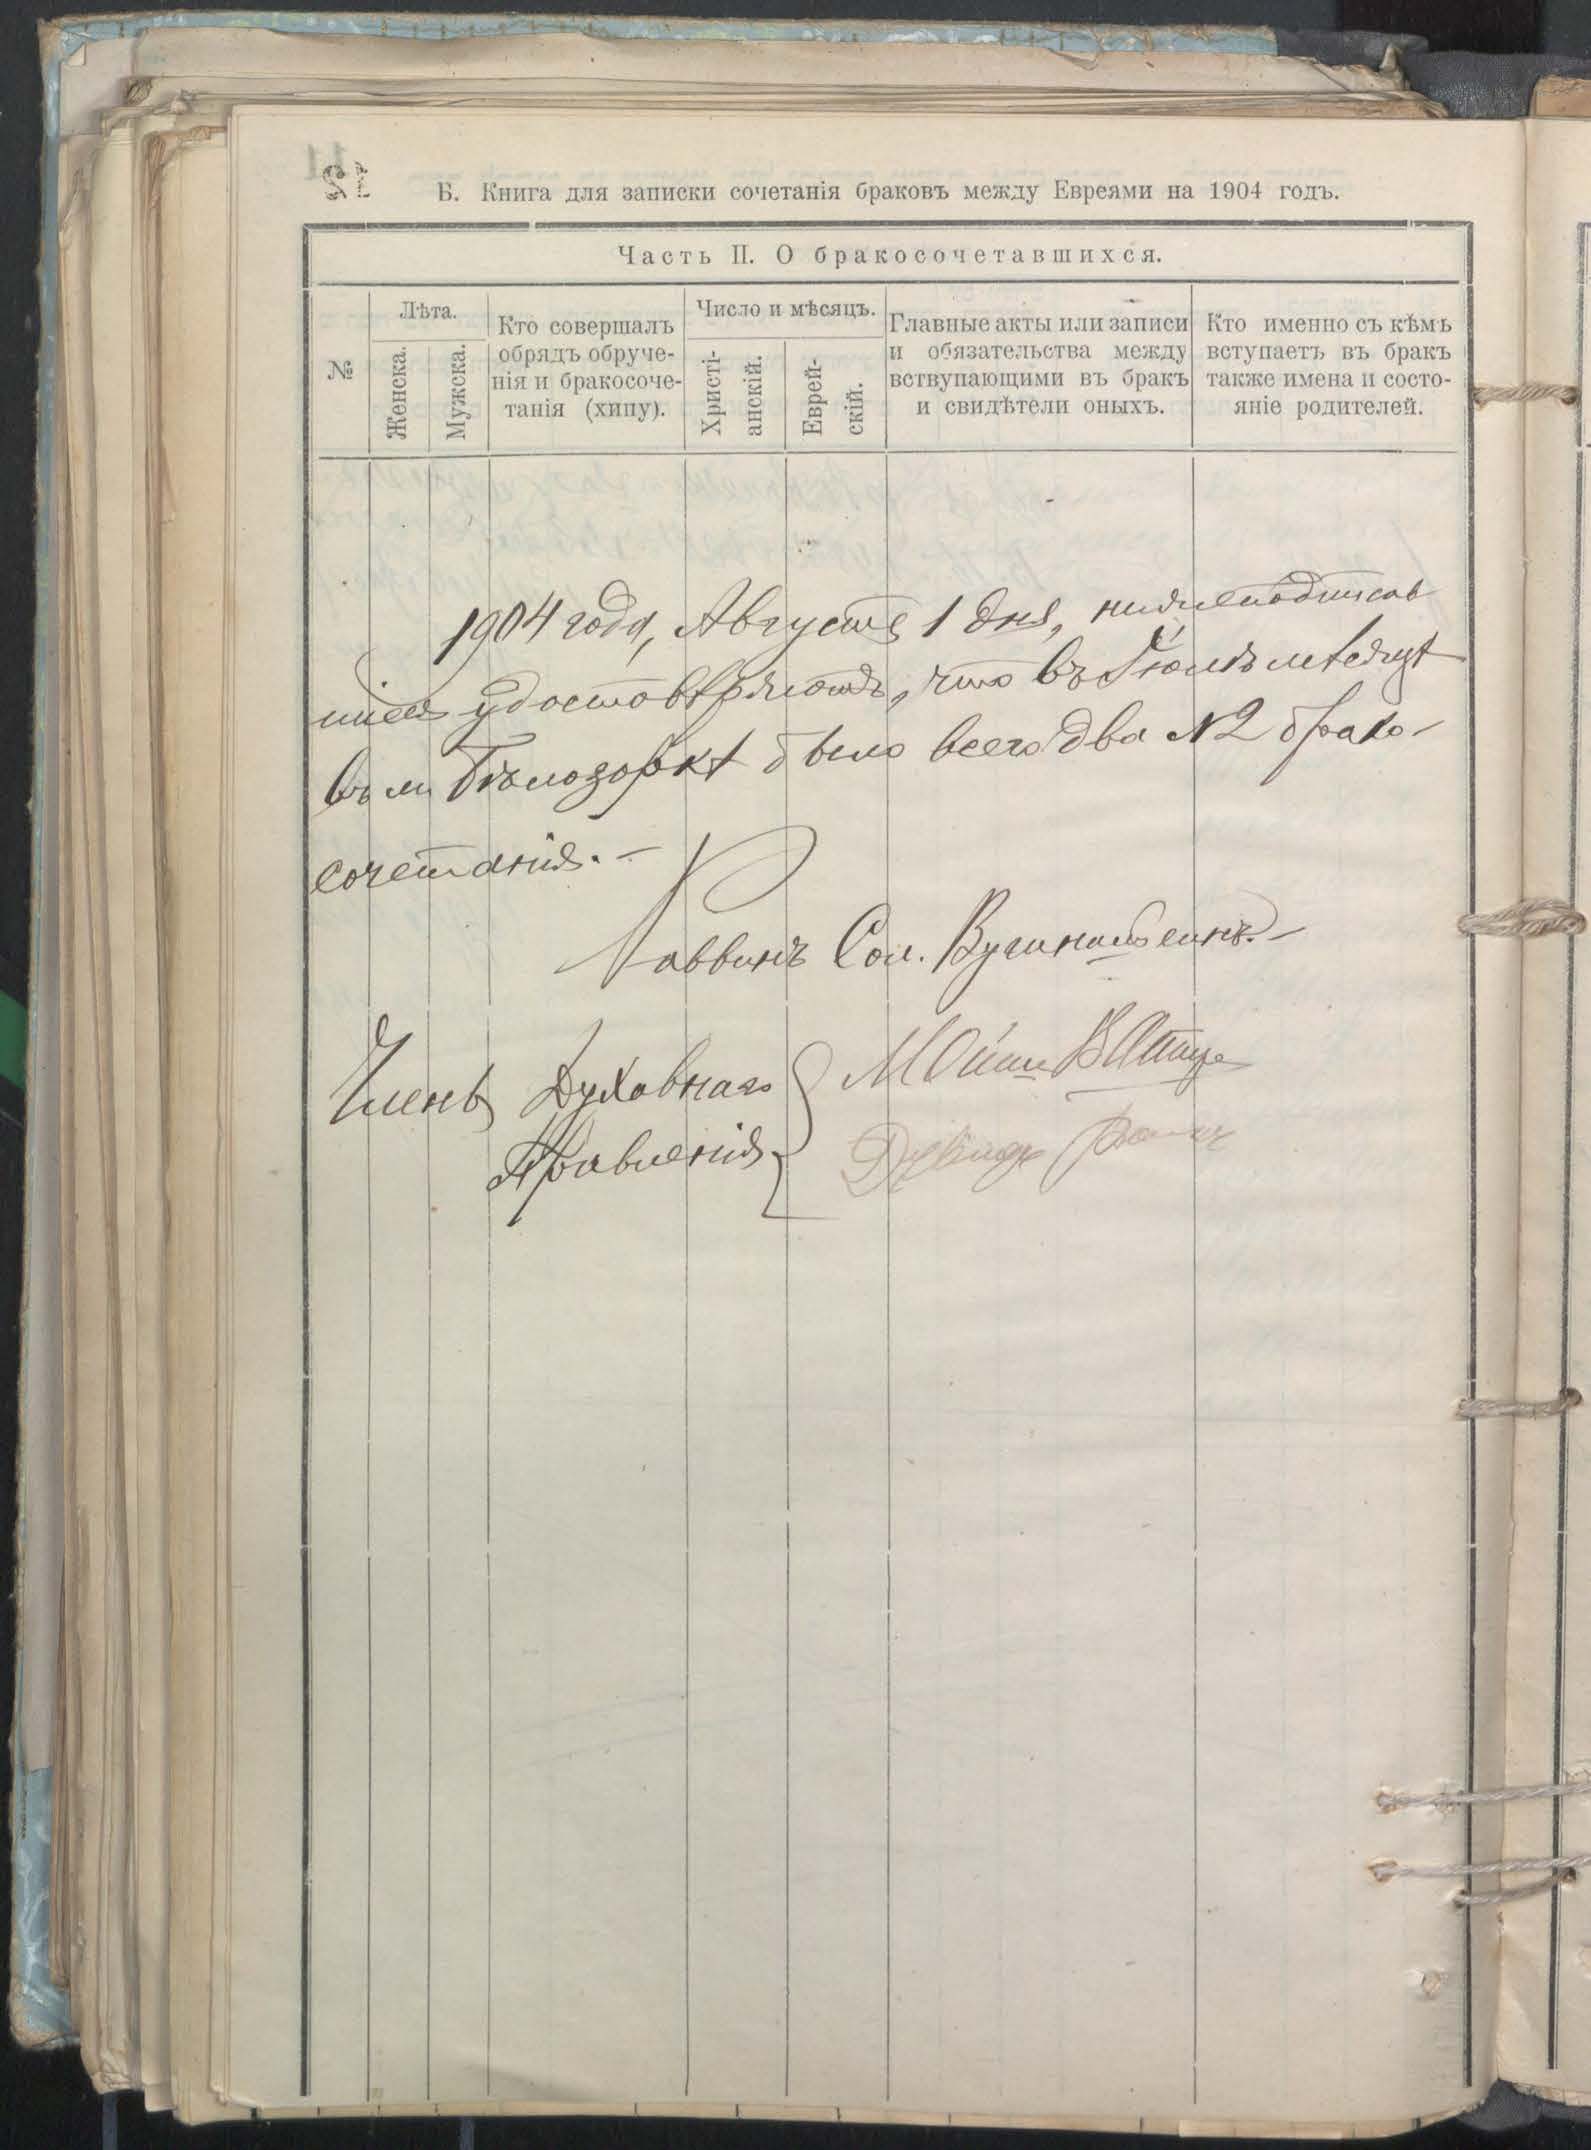 Б. Книга для записки сочетанія браковъ между Евреями на 1904 годъ.
Часть II. О бракосочетавшихся.
№
Лѣта.
Женска.
Мужска.
Кто совершалъ
обрядъ обруче-
нія и бракосоче-
танія (хипу).
Число и мѣсяцъ.
Христі-
анскій.
Еврей-
скій.
Главные акты или записи
и обязательства между
вствупающими въ бракъ
и свидѣтели оныхъ.
Кто именно съ кѣмъ
вступаетъ въ бракъ
также имена и состо-
яніе родителей.
1904 года, Августа 1 дня, нижеподписав
шіеся удостовѣряютъ, что въ Іюлѣ мѣсяцѣ
въ м. Бѣлозоркѣ было всего два № 2 брако-
сочетанія. —
Раввинъ Сол.
Члены Духовнаго
Правленія